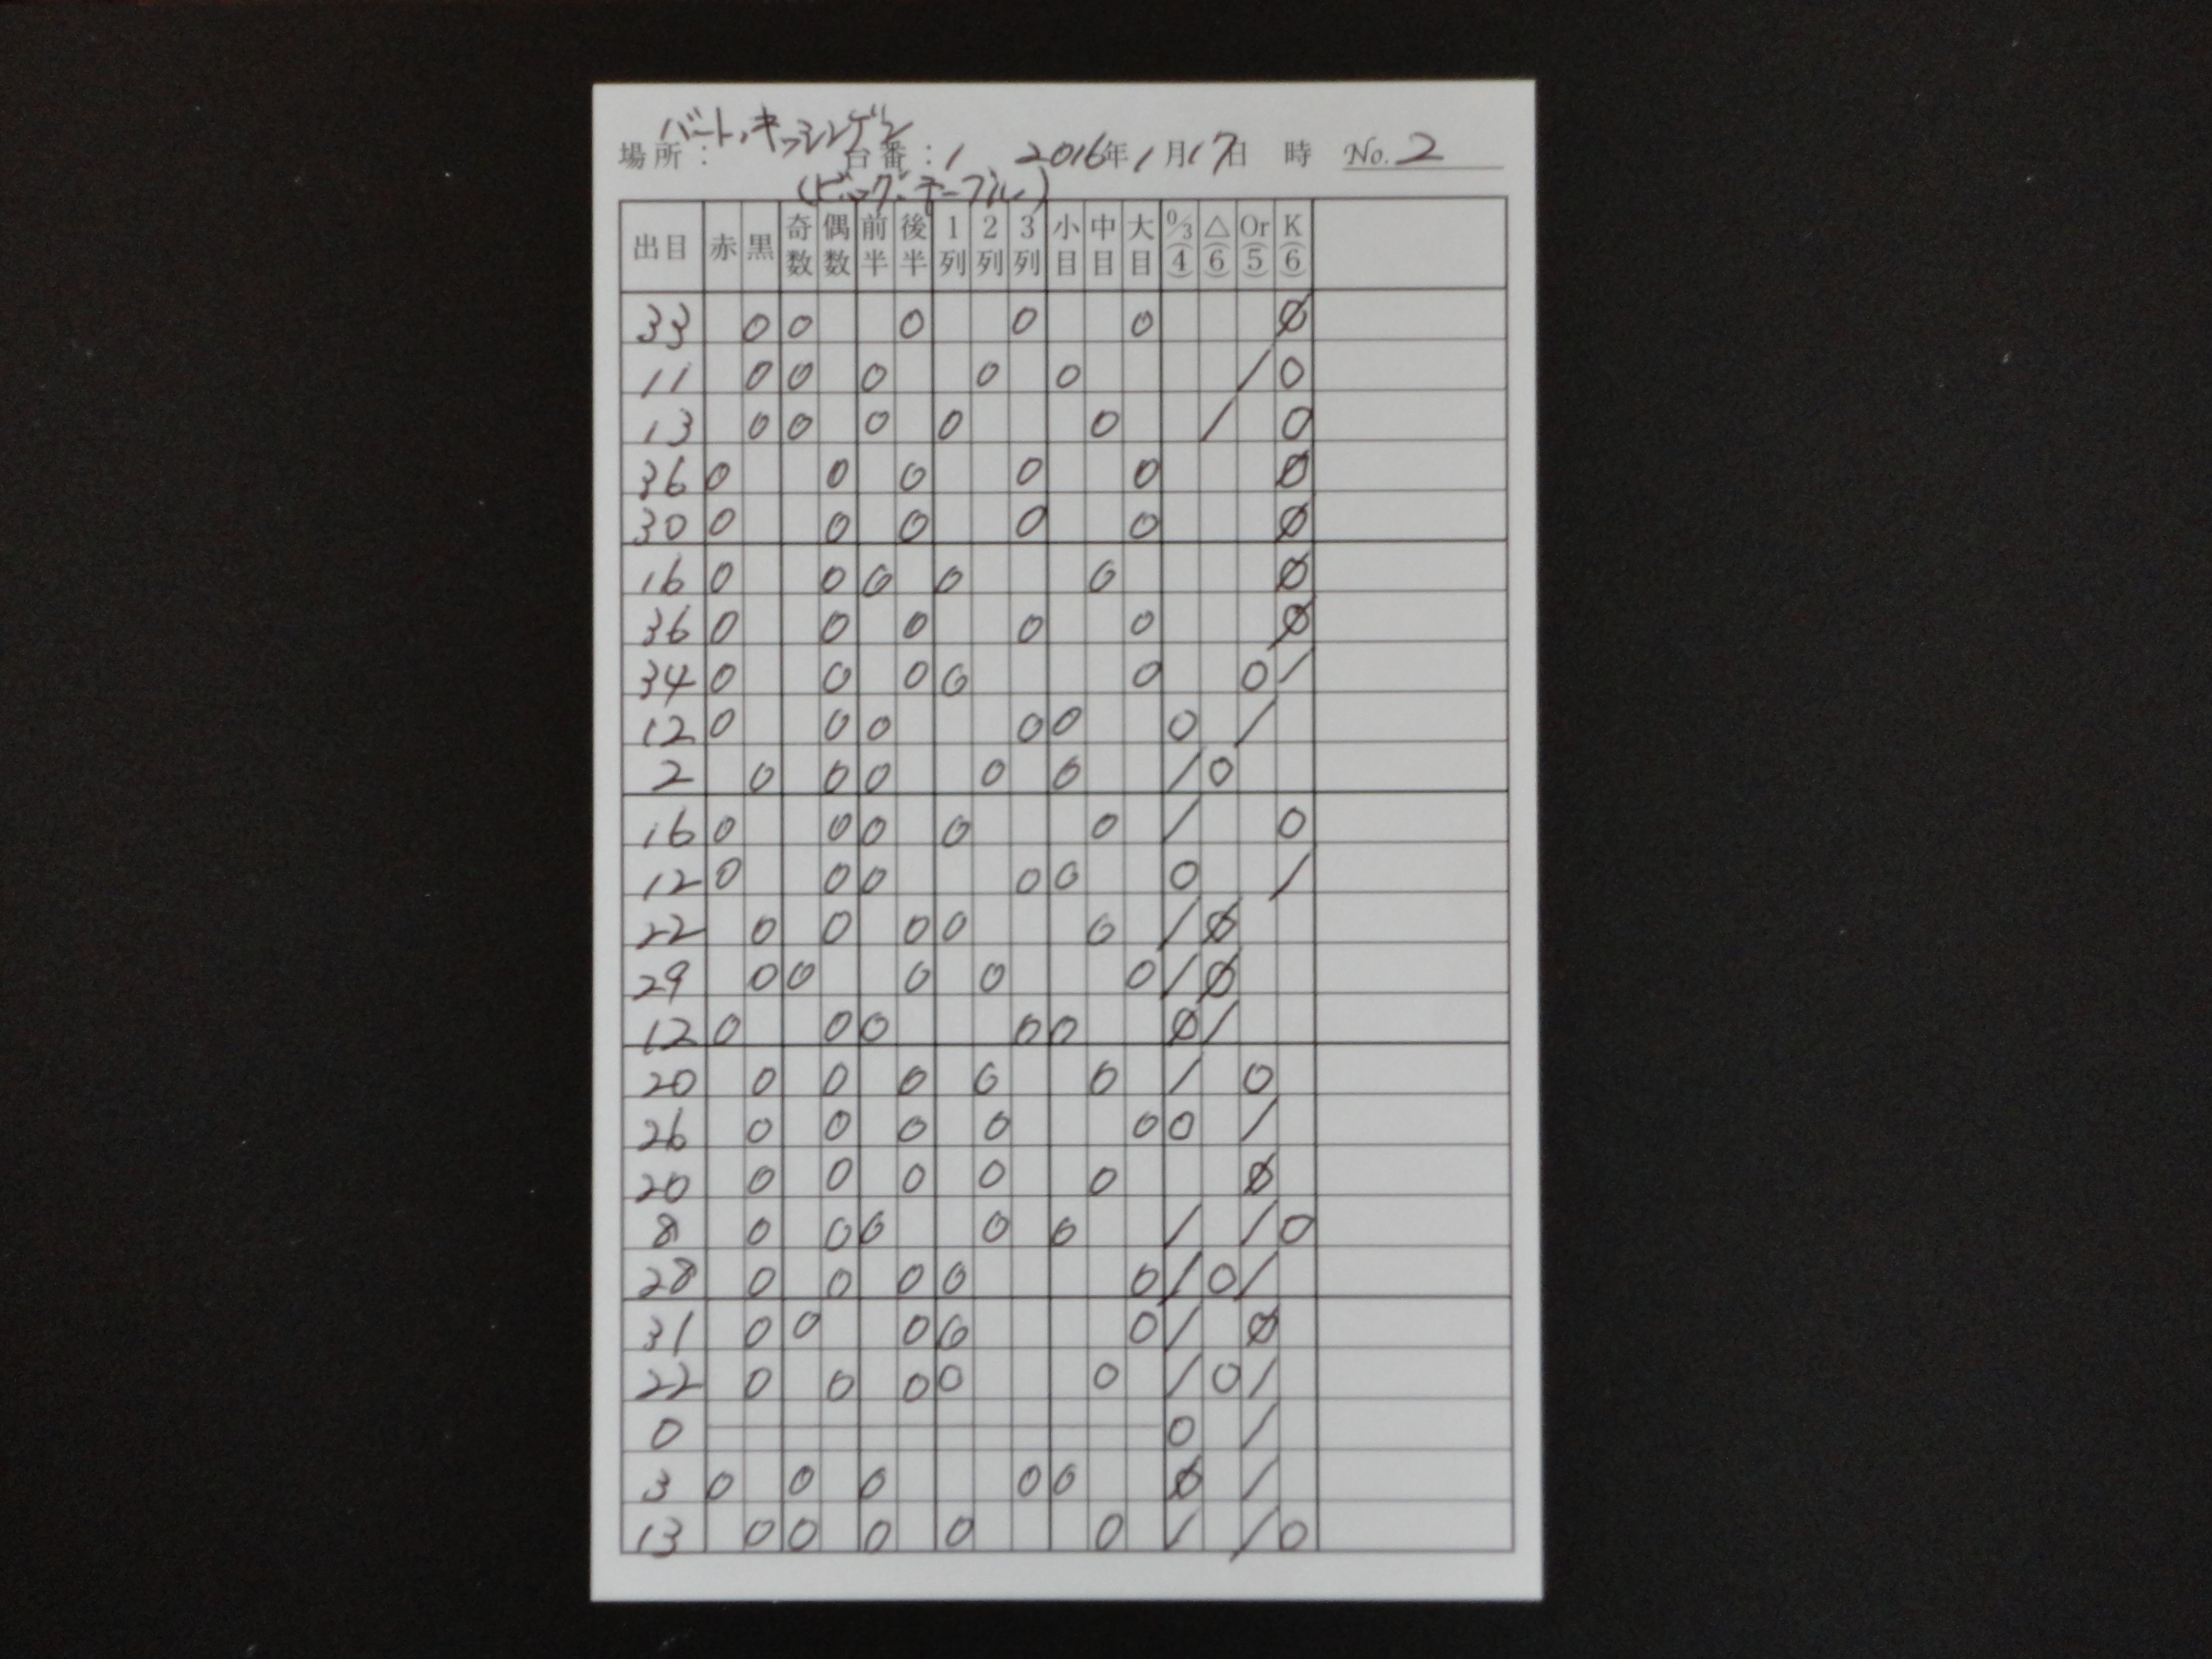 バート・キッシンゲン
場所: 台番:1 2016年1月17日 時 No. 2
(ビッグ・テーブル)
出目 赤 黒 奇数 偶数 前半 後半 1列 2列 3列 小目 中目 大目 0/3(4) △(6) Or(5) K(6)
33 0 0 0 0 0 Ø
11 0 0 0 0 0 / 0
13 0 0 0 0 0 / 0
36 0 0 0 0 0 Ø
30 0 0 0 0 0 Ø
16 0 0 0 0 0 Ø
36 0 0 0 0 0 Ø
34 0 0 0 0 0 0 /
12 0 0 0 0 0 0 /
2 0 0 0 0 0 / 0
16 0 0 0 0 0 / 0
12 0 0 0 0 0 0 /
22 0 0 0 0 0 / Ø
29 0 0 0 0 0 / Ø
12 0 0 0 0 0 Ø /
20 0 0 0 0 0 / 0
26 0 0 0 0 0 0 /
20 0 0 0 0 0 Ø
8 0 0 0 0 0 / / 0
28 0 0 0 0 0 / 0 /
31 0 0 0 0 0 / Ø
22 0 0 0 0 0 / 0 /
0 0 /
3 0 0 0 0 0 Ø /
13 0 0 0 0 0 / / 0